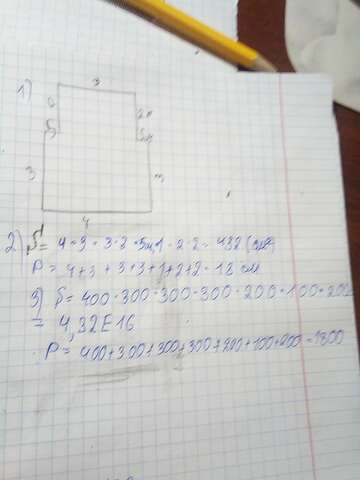 1)
3
2м
3
4
2) S = 4 · 3 · 3 · 3 · 2 · 2 = 432
P = 4 + 3 + 3 + 3 + 1 + 2 + 2 = 18 см
3) S = 400 · 300 · 300 · 300 · 200 · 100 · 200
= 4,32E16
P = 400 + 300 + 300 + 300 + 200 + 100 + 200 = 1800